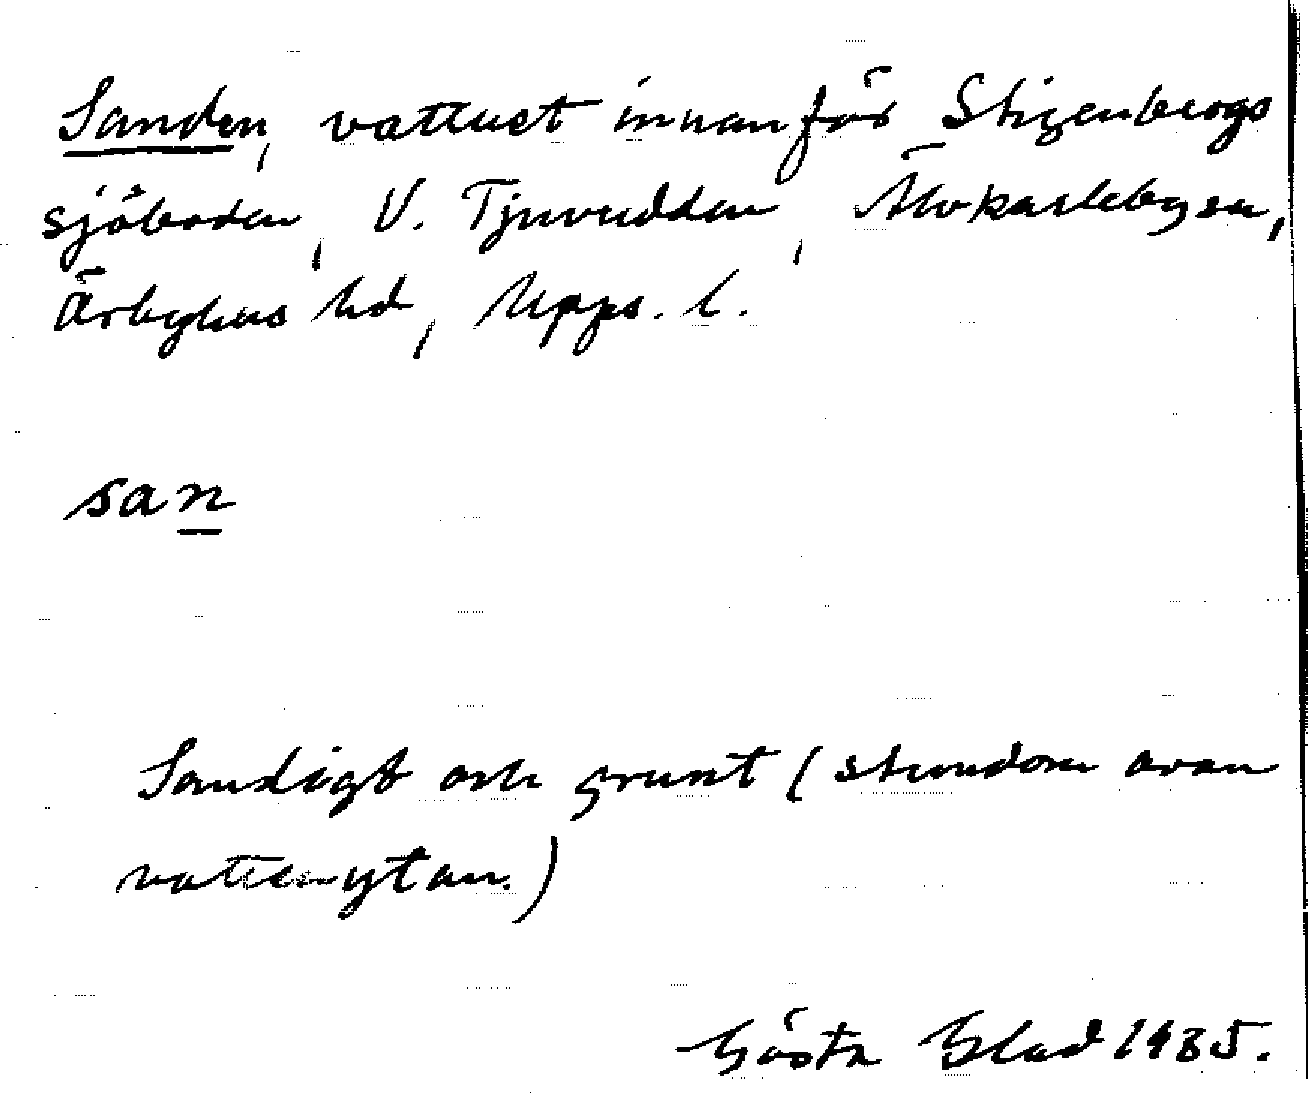 Sanden, vattnet innanför Stigenbergs
sjöboden, V. Tjuvudden, Älvkarleby sn,
Örbyhus hd, Upps. l.
san
Sandigt och grunt (stundom ovan
vattenytan.)
Gösta Blad 1935.